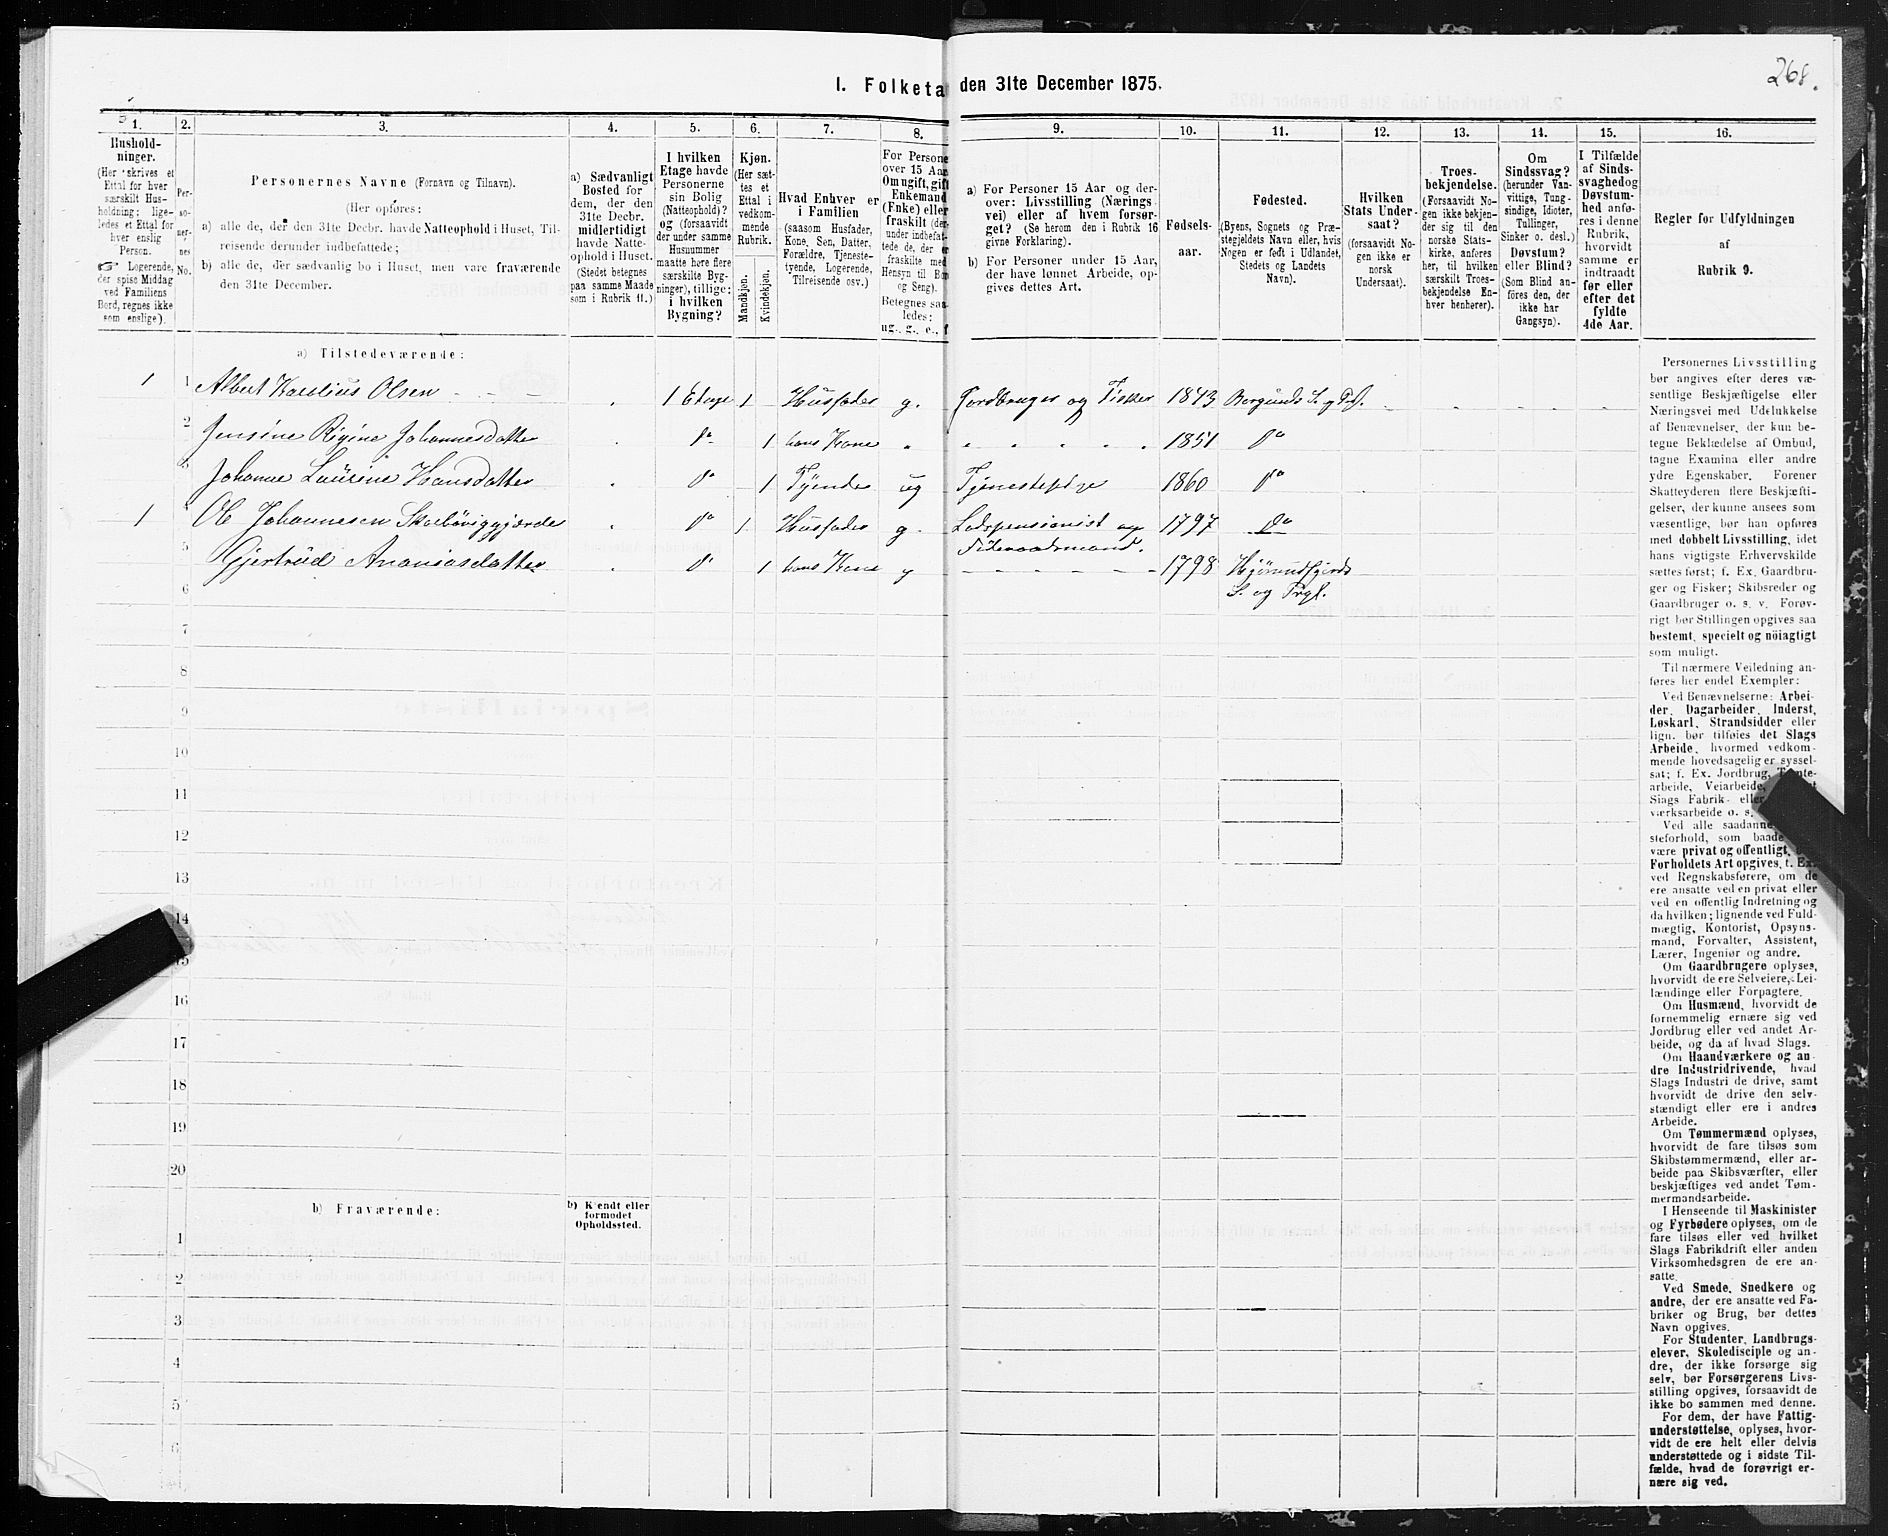 268.
I. Folketa den 31te December 1875.
1. 2. 3. 4. 5. 6. 7. 8. 9. 10. 11. 12. 13. 14. 15. 16.
Hushold-
ninger.
(Her skrives et
Ettal for hver
særskilt Hus-
holdning; lige-
ledes et Ettal for
hver enslig
Person.
☞ Logerende,
der spise Middag
ved Familiens
Bord, regnes ikke
som enslige).
Per-
so-
ner-
nes
No.
Personernes Navne (Fornavn og Tilnavn).
(Her opføres:
a) alle de, der den 31te Decbr. havde Natteophold i Huset, Til-
reisende derunder indbefattede;
b) alle de, der sædvanlig bo i Huset, men vare fraværende
den 31te December.
a) Sædvanligt
Bosted for
dem, der den
31te Decbr.
midlertidigt
havde Natte-
ophold i Huset.
(Stedet betegnes
paa samme Maade
som i Rubrik 11.)
I hvilken
Etage havde
Personerne
sin Bolig
(Natteophold)?
og (forsaavidt
der under samme
Husnummer
maatte høre flere
særskilte Byg-
ninger), tillige:
i hvilken
Bygning?
Kjøn.
(Her sæt-
tes et
Ettal i
vedkom-
mende
Rubrik.
Mandkjøn.
Kvindekjøn.
Hvad Enhver er
i Familien
(saasom Husfader,
Kone, Søn, Datter,
Forældre, Tjeneste-
tyende, Logerende,
Tilreisende osv.)
For Persone
over 15 Aar
Om ugift, gift
Enkemand
(Enke) eller
fraskilt (der-
under indbefat-
tede de, der er
fraskilte med
Hensyn til Bo
og Seng).
Betegnes saa-
ledes:
ug., g., e., f
a) For Personer 15 Aar og der-
over: Livsstilling (Nærings
vei) eller af hvem forsør-
get? (Se herom den i Rubrik 16
givne Forklaring).
b) For Personer under 15 Aar,
der have lønnet Arbeide, op-
gives dettes Art.
Fødsels-
aar.
Fødested.
(Byens, Sognets og Præ-
stegjeldets Navn eller, hvis
Nogen er født i Udlandet,
Stedets og Landets
Navn).
Hvilken
Stats Under-
saat?
(forsaavidt No-
gen ikke er
norsk
Undersaat).
Troes-
bekjendelse.
(Forsaavidt No-
gen ikke bekjen-
der sig til den
norske Stats-
kirke, anføres
her, til hvilken
særskilt Troes-
bekjendelse En-
hver henhører).
Om
Sindssvag?
(herunder Van-
vittige, Tung-
sindige, Idioter,
Tullinger,
Sinker o. desl.)
Døvstum?
eller Blind?
(Som Blind an-
føres den, der
ikke har
Gangsyn).
I Tilfælde
af Sinds-
svaghed og
Døvstum-
hed anfø-
res i denne
Rubrik,
hvorvidt
samme er
indtraadt
før eller
efter det
fyldte
4de Aar.
Regler for Udfyldningen
af
Rubrik 9.
a) Tilstedeværende:
1 1 Albert Karolius Olsen 1 Etage 1 Husfader g. Jordbruger og Fisker 1843 Borgunds S. og Prf.
2 Jensine Rigine Johannesdatter do 1 hans Kone " 1851 do
3 Johanne Laurine Hansdatter do 1 Tyende ug Tjenestepige 1860 do
1 4 Ole Johannesen Skorbøviggjærde do 1 Husfader g. Lodspensionist og 1797 do
Føderaadsmand.
5 Gjertrud Ananiasdatter do 1 hans Kone g 1798 Hjørundfjords
S. og Prgl.
6
7
8
9
10
11
12
13
14
15
16
17
18
19
20
b) Fraværende:
b) Kjendt eller
formodet
Opholdssted.
1
2
3
4
5
6
Personernes Livsstilling
bør angives efter deres væ-
sentlige Beskjæftigelse eller
Næringsvei med Udelukkelse
af Benævnelser, der kun be-
tegne Beklædelse af Ombud,
tagne Examina eller andre
ydre Egenskaber. Forener
Skatteyderen flere Beskjæfti-
gelser, der kunne ansees som
væsentlige, bør han opføres
med dobbelt Livsstilling, idet
hans vigtigste Erhvervskilde
sættes først; f. Ex. Gaardbru-
ger og Fisker; Skibsreder og
Gaardbruger o. s. v. Forøv-
rigt bør Stillingen opgives saa
bestemt, specielt og nöiagtigt
som muligt.
Til nærmere Veiledning an-
føres her endel Exempler:
Ved Benævnelserne: Arbei-
der, Dagarbeider, Inderst,
Løskarl, Strandsidder eller
lign. bør tilføies det Slags
Arbeide, hvormed vedkom-
mende hovedsagelig er syssel-
sat; f. Ex. Jordbrug, Tomte-
arbeide, Veiarbeide,
Slags Fabrik- eller
værksarbeide o. s.
Ved alle saadanne
steforhold, som baade
være privat og offentligt,
Forholdets Art opgives, f. Ex.
ved Regnskabsførere, om de
ere ansatte ved en privat eller
ved en offentlig Indretning og
da hvilken; lignende ved Fuld-
mægtig, Kontorist, Opsyns-
mand, Forvalter, Assistent,
Lærer, Ingeniør og andre.
Om Gaardbrugere oplyses,
hvorvidt de ere Selveiere, Lei-
lændinge eller Forpagtere.
Om Husmænd, hvorvidt de
fornemmelig ernære sig ved
Jordbrug eller ved andet Ar-
beide, og da af hvad Slags.
Om Haandværkere og an-
dre Industridrivende, hvad
Slags Industri de drive, samt
hvorvidt de drive den selv-
stændigt eller ere i andres
Arbeide.
Om Tømmermænd oplyses,
hvorvidt de fare tilsøs som
Skibstømmermænd, eller ar-
beide paa Skibsværfter, eller
beskjæftiges ved andet Tøm-
mermandsarbeide.
I Henseende til Maskinister
og Fyrbødere oplyses, om de
fare tilsøs eller ved hvilket
Slags Fabrikdrift eller anden
Virksomhedsgren de ere an-
satte.
Ved Smede, Snedkere og
andre, der ere ansatte ved Fa-
briker og Brug, bør dettes
Navn opgives.
For Studenter, Landbrugs-
elever, Skoledisciple og an-
dre, der ikke forsørge sig
selv, bør Forsørgerens Livs-
stilling opgives, forsaavidt de
ikke bo sammen med denne.
For dem, der have Fattig-
understøttelse, oplyses, hvor-
vidt de ere helt eller delvis
understøttede og i sidste Til-
fælde, hvad de forøvrigt er-
nære sig ved.